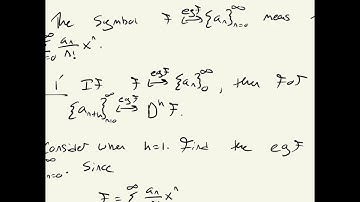 The symbol F ⟷^{egf} {a_n}_{n=0}^∞ meas
∑_{n=0}^∞ a_n/n! x^n.
1' If F ⟷^{egf} {a_n}_0^∞, then for
{a_{n+h}}_{n=0}^∞ ⟷^{egf} D^h F.
Consider when h=1. Find the egf
_{n=0}^∞. Since
F = ∑^∞ a_n/n! x^n